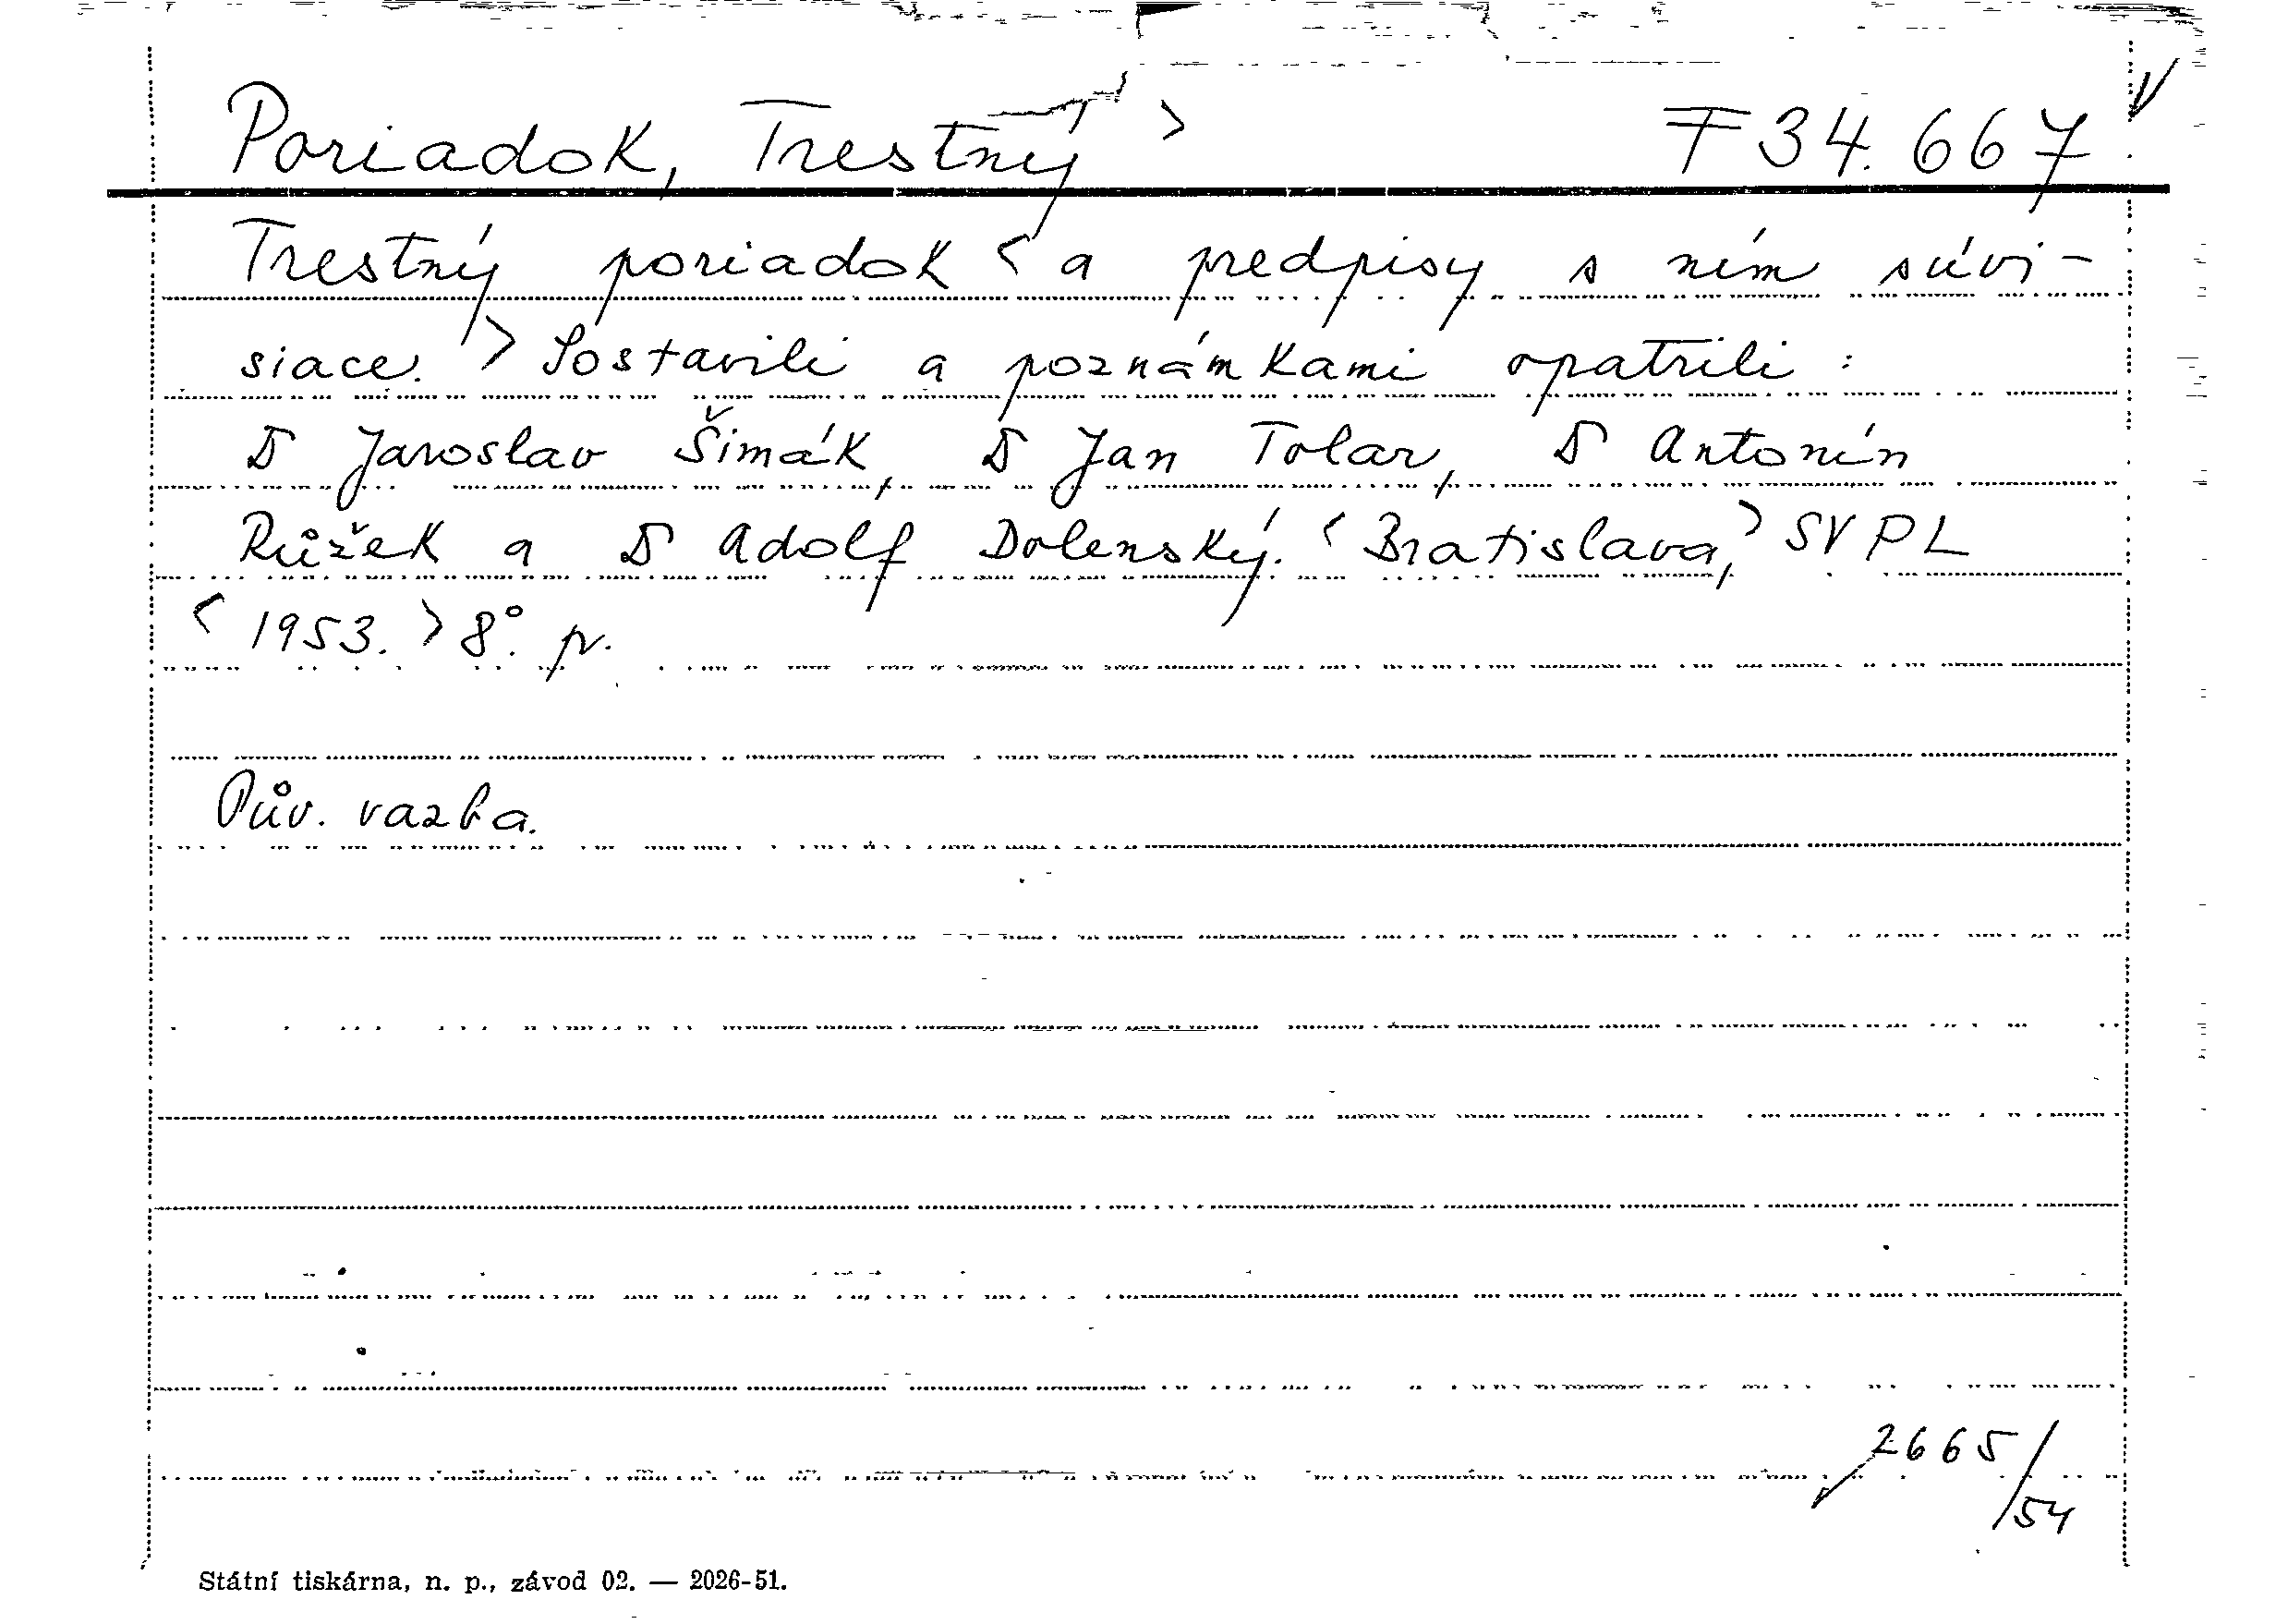 Poriadok, Trestný > F 34.667
Trestný poriadok < a predpisy s ním súvi-
siace. > Sostavili a poznámkami opatrili :
D Jaroslav Šimák, D Jan Tolar, D Antonín
Růžek a D Adolf Dolenský. < Bratislava, > SVPL
< 1953. > 8°. p.
Pův. vazba.
2665/
/54
Státní tiskárna, n. p., závod 02. — 2026-51.